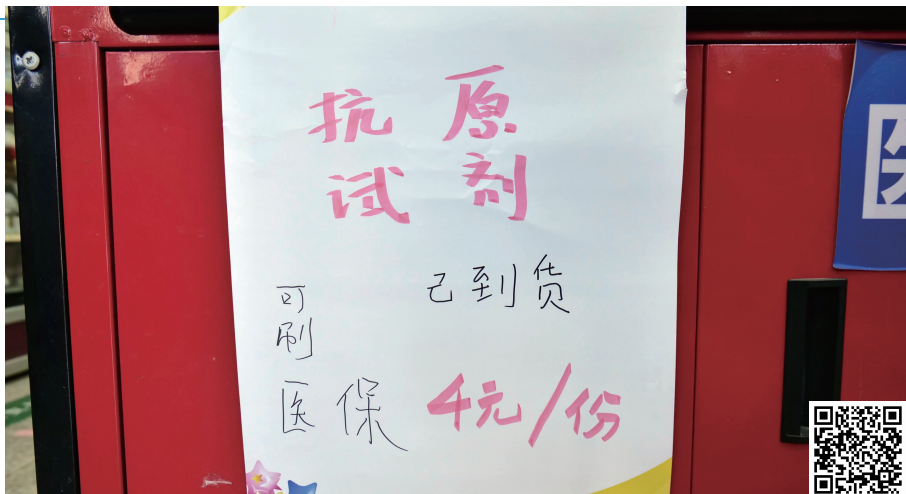 抗原
试剂
已到货
可刷
医保 4元/份
医